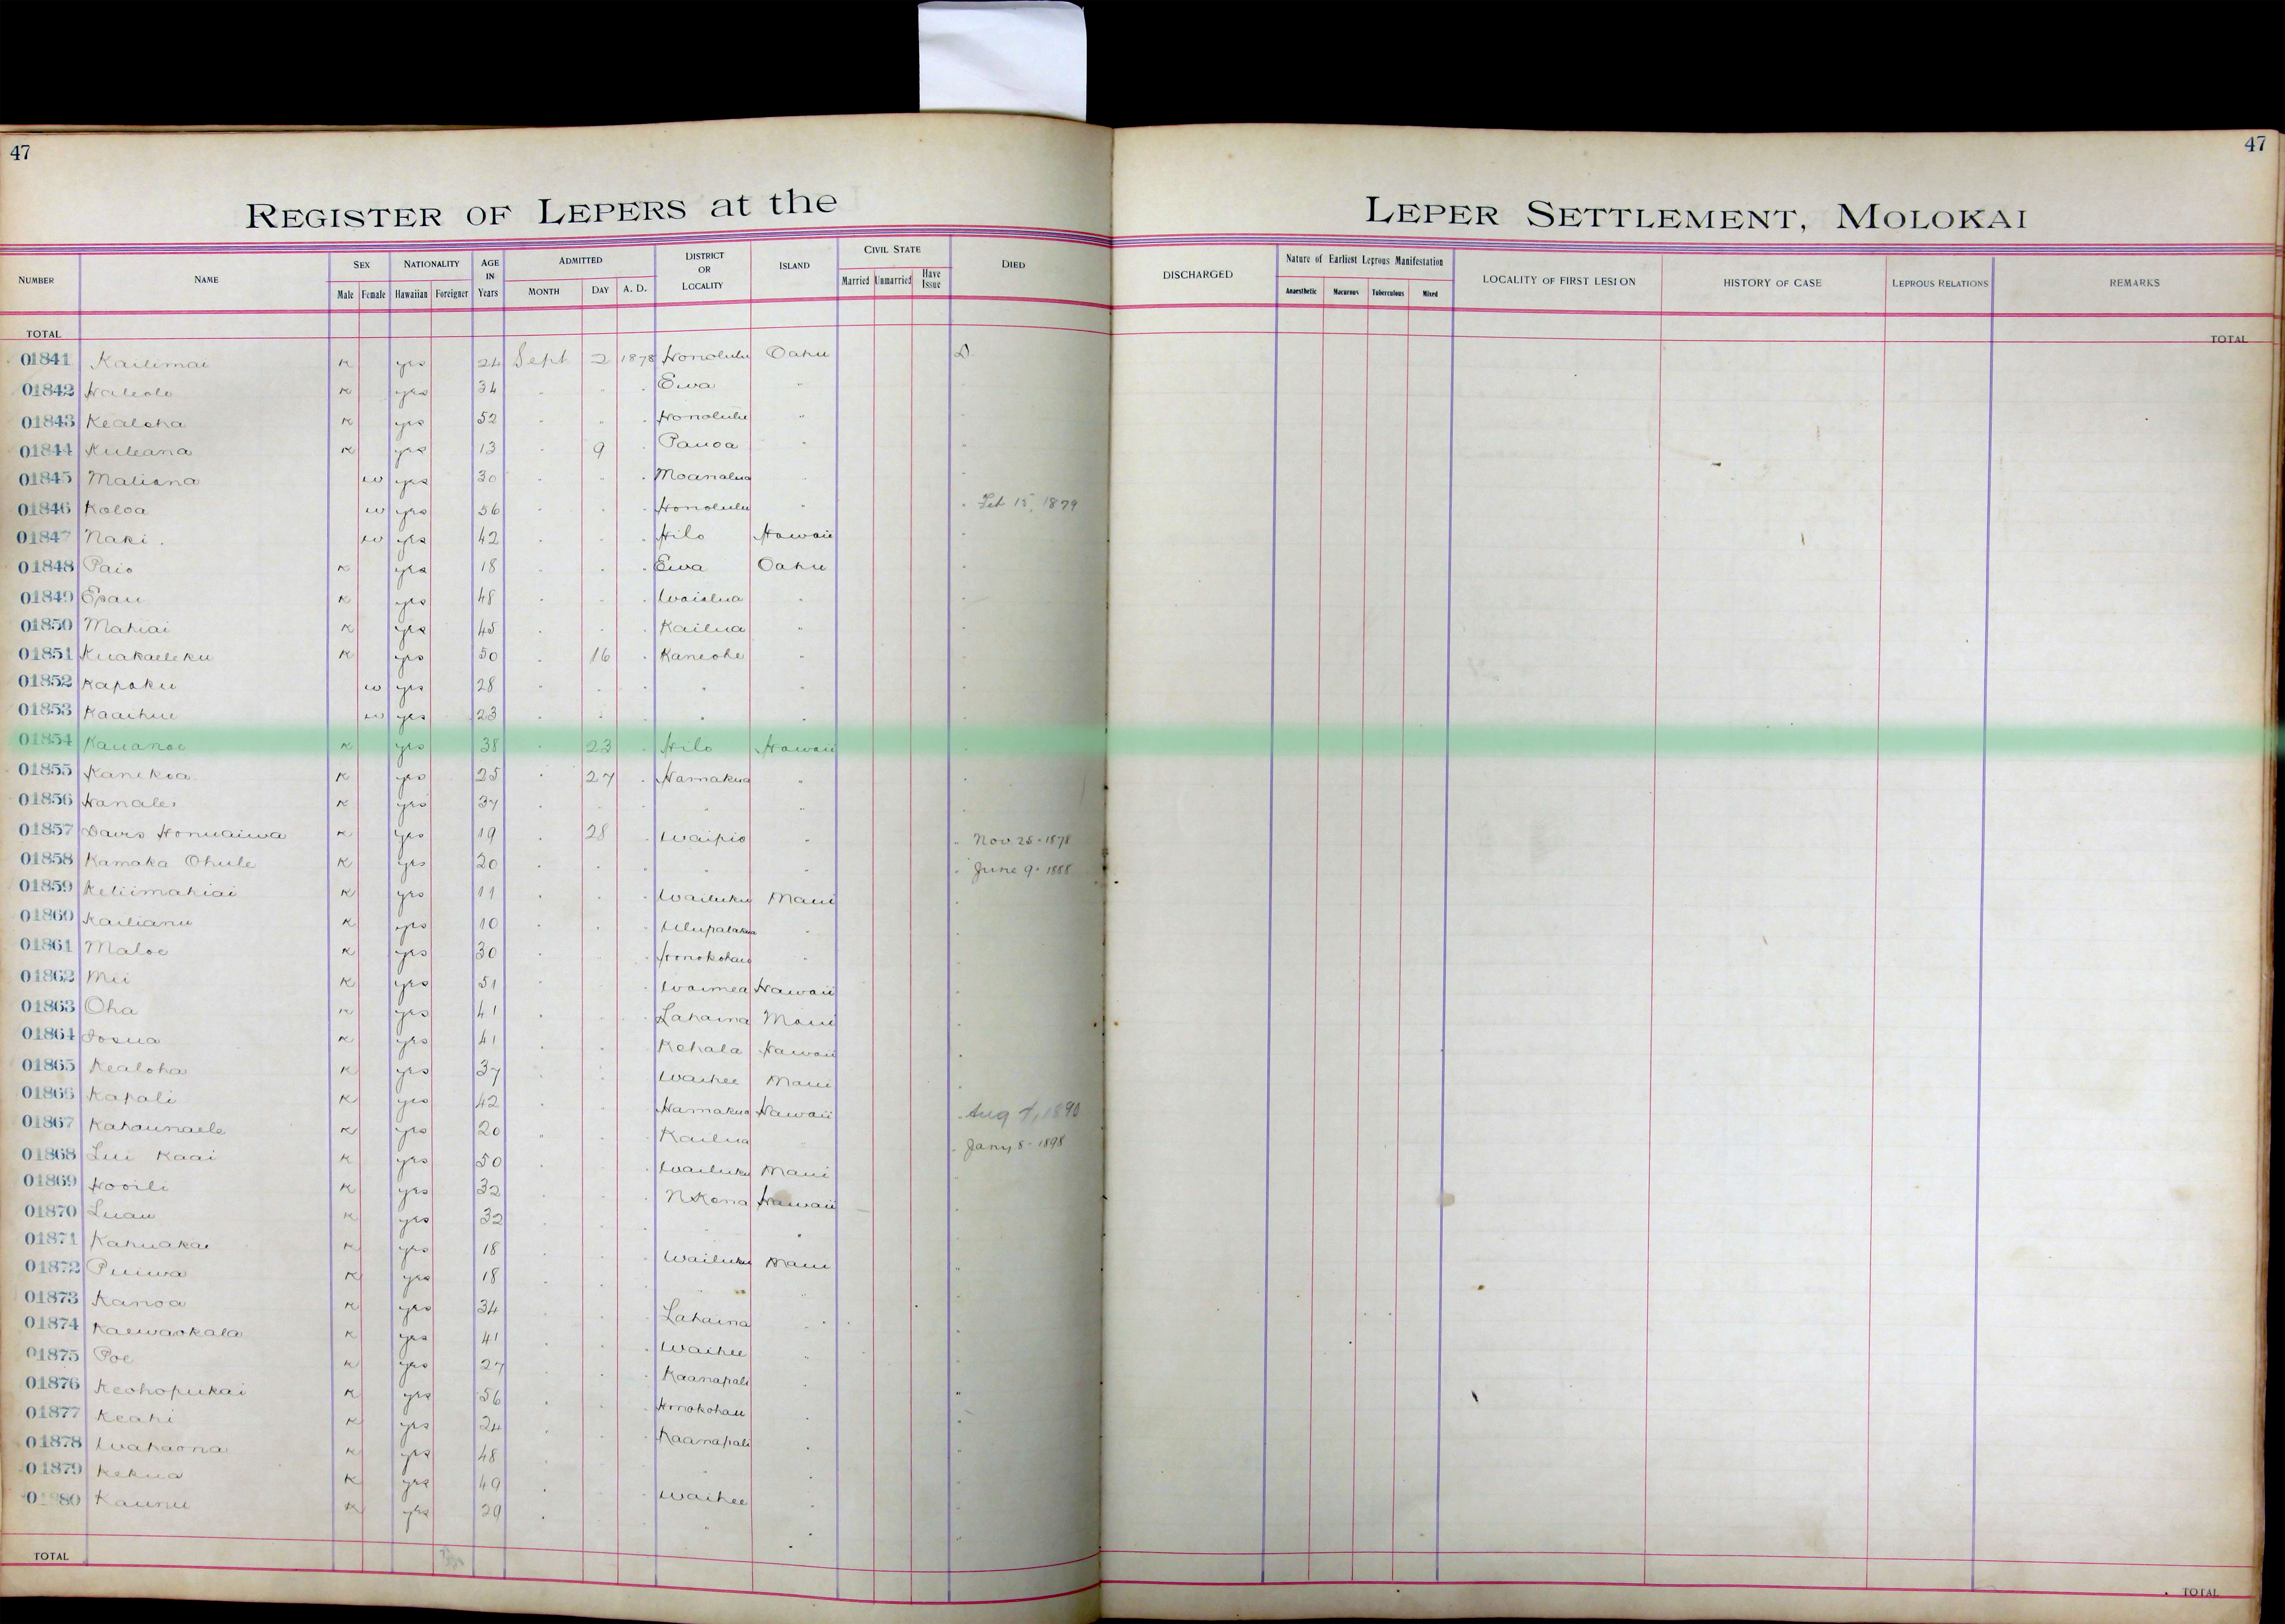 47
47
REGISTER OF LEPERS at the LEPER SETTLEMENT, MOLOKAI
NUMBER NAME SEX NATIONALITY AGE IN Years ADMITTED DISTRICT OR LOCALITY ISLAND CIVIL STATE DIED DISCHARGED Nature of Earliest Leprous Manifestation LOCALITY OF FIRST LESION HISTORY OF CASE LEPROUS RELATIONS REMARKS
Male Female Hawaiian Foreigner MONTH DAY A. D. Married Unmarried Have Issue Anaesthetic Macurous Tuberculous Mixed
TOTAL TOTAL
01841 Kailimai K yes 24 Sept 2 1878 Honolulu Oahu D
01842 Haleole K yes 34 " " " Ewa "
01843 Kealoha K yes 52 " " " Honolulu "
01844 Kuleana K yes 13 " 9 " Pauoa "
01845 Maliana w yes 30 " " " Moanalua "
01846 Koloa w yes 56 " " " Honolulu " " Feb 15, 1879
01847 Naki w yes 42 " " " Hilo Hawaii "
01848 Paio K yes 18 " " " Ewa Oahu "
01849 Epau K yes 48 " " " Waialua " "
01850 Mahiai K yes 45 " " " Kailua " "
01851 Kuakaeleku K yes 50 " 16 " Kaneohe " "
01852 Kapoku w yes 28 " " " " " "
01853 Kaaihue w yes 23 " " " " " "
01854 Kauanoe K yes 38 " 23 " Hilo Hawaii "
01855 Kanekoa K yes 25 " 27 " Hamakua " "
01856 Hanalei K yes 37 " " " " " "
01857 Davis Honuaiwa K yes 19 " 28 " Waipio " " Nov 25 - 1878
01858 Kamaka Ohule K yes 20 " " " " " " June 9 - 1888
01859 Keliimahiai K yes 11 " " " Wailuku Maui "
01860 Kailianu K yes 10 " " " Ulupalakua " "
01861 Maloe K yes 30 " " " Honokohau " "
01862 Mii K yes 51 " " " Waimea Hawaii "
01863 Oha K yes 41 " " " Lahaina Maui "
01864 Iosua K yes 41 " " " Kohala Hawaii "
01865 Kealoha K yes 37 " " " Waihee Maui "
01866 Kapali K yes 42 " " " Hamakua Hawaii " Aug 7, 1890
01867 Kahaunaele K yes 20 " " " Kailua " " Jany 8 - 1898
01868 Lui Kaai K yes 50 " " " Wailuku Maui "
01869 Hooili K yes 32 " " " N Kona Hawaii "
01870 Luau K yes 32 " " " " " "
01871 Kahuakai K yes 18 " " " Wailuku Maui "
01872 Puiwa K yes 18 " " " " " "
01873 Kanoa K yes 34 " " " Lahaina " "
01874 Kaewaokala K yes 41 " " " Waihee " "
01875 Poe K yes 27 " " " Kaanapali " "
01876 Keohopukai K yes 56 " " " Honokohau " "
01877 Keahi K yes 24 " " " Kaanapali " "
01878 Wahaona K yes 48 " " " " " "
01879 Kekua K yes 49 " " " Waihee " "
01880 Kaunu K yes 29 " " " " " "
TOTAL TOTAL